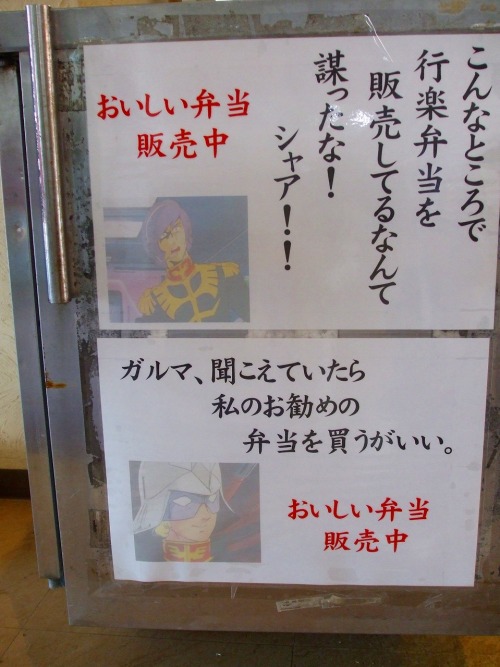 こんなところで
行楽弁当を
販売してるなんて
謀ったな!
シャア!!
おいしい弁当
販売中
ガルマ、聞こえていたら
私のお勧めの
弁当を買うがいい。
おいしい弁当
販売中